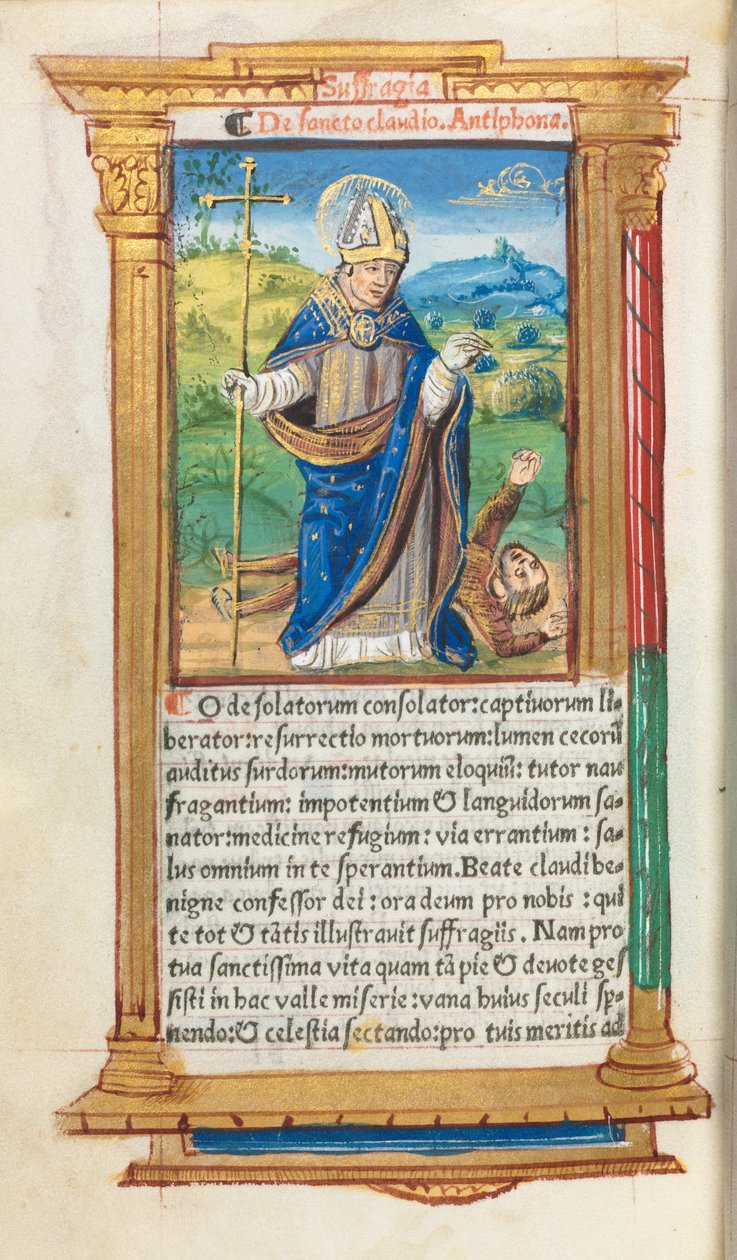 Suffragia
¶ De sancto claudio. Antiphona.
¶ O desolatorum consolator: captiuorum li-
berator: resurrectio mortuorum: lumen cecorũ
auditus surdorum: mutorum eloquiũ: tutor nau
fragantium: impotentium & languidorum sa-
nator: medicine refugium: via errantium: sa-
lus omnium in te sperantium. Beate claudi be-
nigne confessor dei: ora deum pro nobis: qui
te tot & tãtis illustrauit suffragiis. Nam pro
tua sanctissima vita quam tã pie & deuote ges
sisti in hac valle miserie: vana huius seculi sp̱-
nendo: & celestia sectando: pro tuis meritis ad